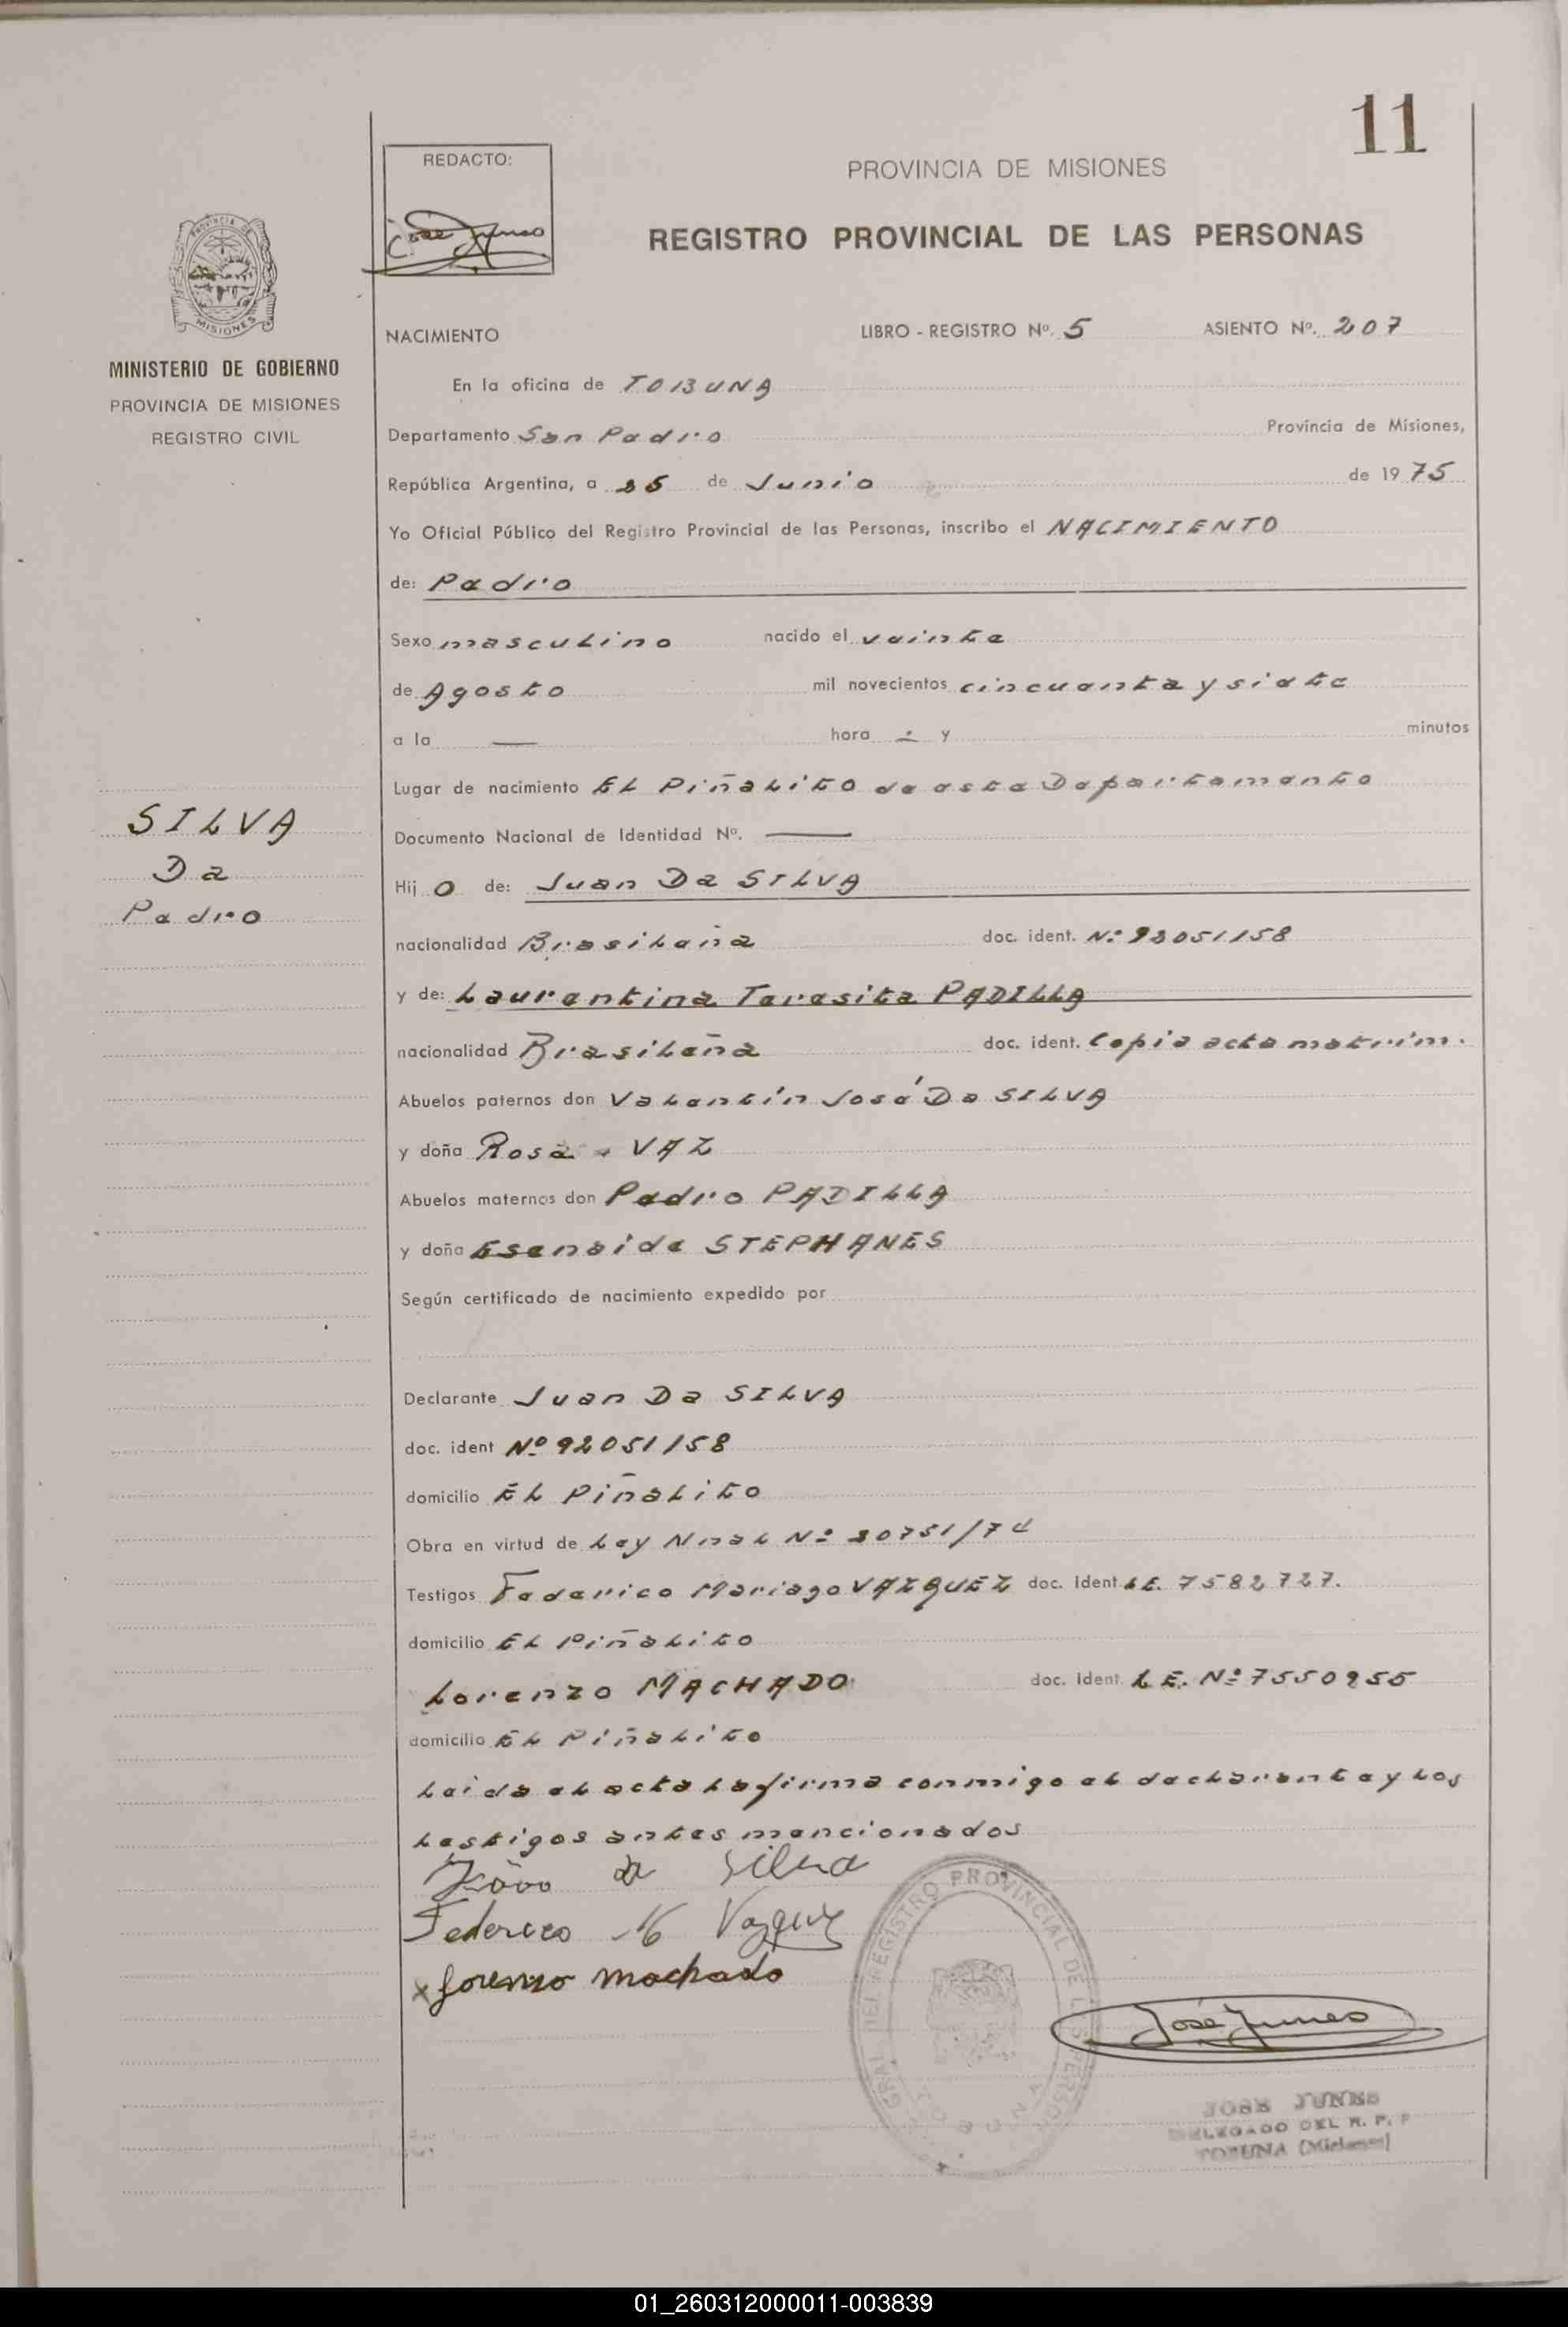 11
REDACTO:
José Junes
PROVINCIA DE MISIONES
REGISTRO PROVINCIAL DE LAS PERSONAS
PROVINCIA DE
MISIONES
MINISTERIO DE GOBIERNO
PROVINCIA DE MISIONES
REGISTRO CIVIL
NACIMIENTO LIBRO - REGISTRO Nº. 5 ASIENTO Nº. 207
En la oficina de TOBUNA
Departamento San Pedro Provincia de Misiones,
República Argentina, a 25 de Junio de 1975
Yo Oficial Público del Registro Provincial de las Personas, inscribo el NACIMIENTO
de: Pedro
Sexo masculino nacido el veinte
de Agosto mil novecientos cincuenta y siete
a la — hora — y minutos
Lugar de nacimiento El Piñalito de este Departamento
Documento Nacional de Identidad Nº. —
SILVA
Da
Pedro
Hij o de: Juan Da SILVA
nacionalidad Brasileña doc. ident. Nº 92051158
y de: Laurentina Teresita PADILLA
nacionalidad Brasileña doc. ident. Copia acta matrim.
Abuelos paternos don Valentín José Da SILVA
y doña Rosa VAZ
Abuelos maternos don Pedro PADILLA
y doña Esenaide STEPHANES
Según certificado de nacimiento expedido por
Declarante Juan Da SILVA
doc. ident Nº 92051158
domicilio El Piñalito
Obra en virtud de Ley Nnal Nº 20751/74
Testigos Federico Mariago VAZQUEZ doc. Ident L.E. 7582727.
domicilio El Piñalito
Lorenzo MACHADO doc. Ident. L.E. Nº 7550955
domicilio El Piñalito
Leida el acta la firma conmigo el declarante y los
testigos antes mencionados
João da Silva
Federico M Vazquez
x Lorenzo Machado
GRAL DEL REGISTRO PROVINCIAL DE LAS PERSON
TOBUNA
José Junes
JOSE JUNES
DELEGADO DEL R. P. P
TOBUNA (Misiones)
01_260312000011-003839